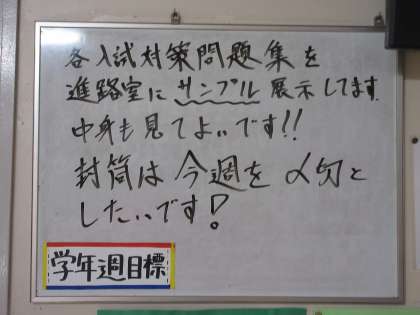 各入試対策問題集を
進路室にサンプル展示してます
中身も見てよいです!!
封筒は今週を〆切と
したいです!
学年週目標